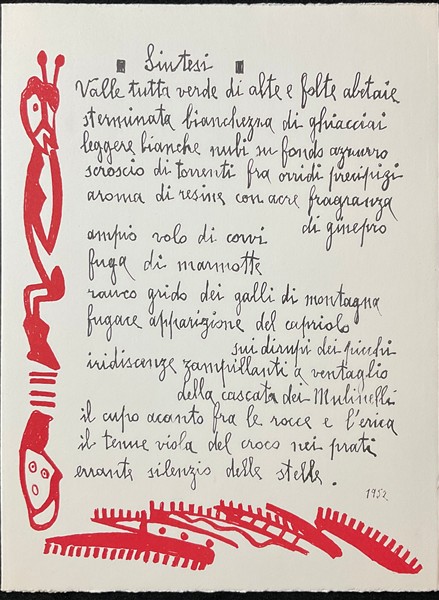 Sintesi
Valle tutta verde di alte e folte abetaie
sterminata bianchezza di ghiacciai
leggere bianche nubi su fondo azzurro
scroscio di torrenti fra orridi precipizi
aroma di resine con acre fragranza
di ginepro
ampio volo di corvi
fuga di marmotte
rauco grido dei galli di montagna
fugace apparizione del capriolo
sui dirupi dei picchi
iridiscenze zampillanti a ventaglio
della cascata dei Mulinelli
il cupo acanto fra le rocce e l'erica
il tenue viola del croco nei prati
errante silenzio delle stelle.
1952